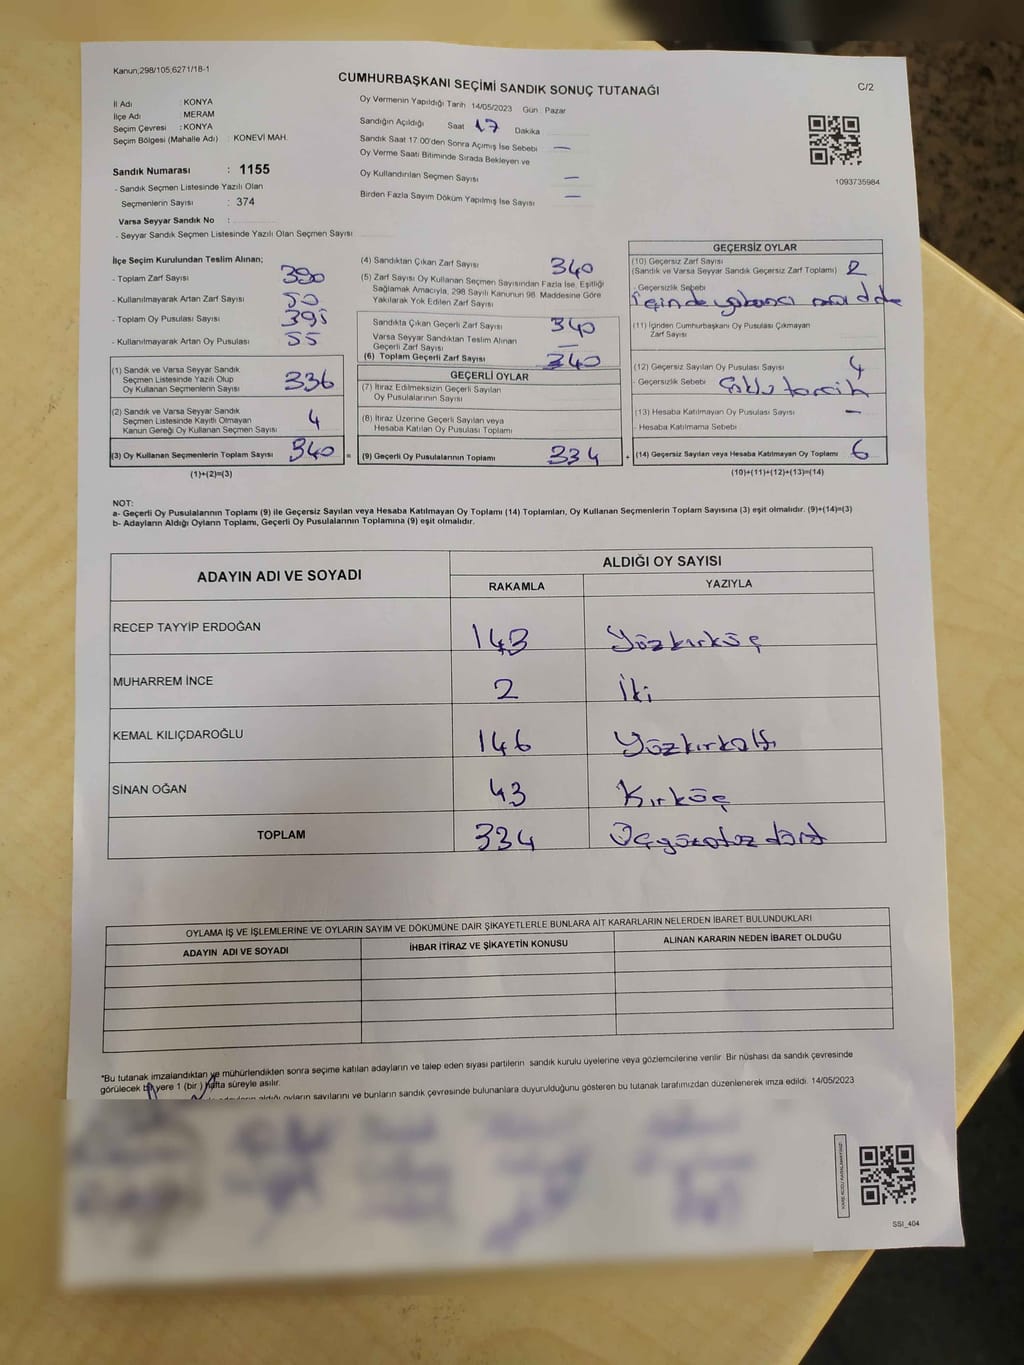 Kanun;298/105,6271/18-1
CUMHURBAŞKANI SEÇİMİ SANDIK SONUÇ TUTANAĞI
C/2
İl Adı : KONYA
İlçe Adı : MERAM
Seçim Çevresi : KONYA
Seçim Bölgesi (Mahalle Adı) : KONEVİ MAH.
Sandık Numarası : 1155
- Sandık Seçmen Listesinde Yazılı Olan
Seçmenlerin Sayısı : 374
Varsa Seyyar Sandık No :
- Seyyar Sandık Seçmen Listesinde Yazılı Olan Seçmen Sayısı
Oy Vermenin Yapıldığı Tarih 14/05/2023 Gün : Pazar
Sandığın Açıldığı Saat 17 Dakika
Sandık Saat 17.00'den Sonra Açımış İse Sebebi —
Oy Verme Saati Bitiminde Sırada Bekleyen ve
Oy Kullandırılan Seçmen Sayısı —
Birden Fazla Sayım Döküm Yapılmış İse Sayısı —
1093735984
İlçe Seçim Kurulundan Teslim Alınan;
- Toplam Zarf Sayısı 390
- Kullanılmayarak Artan Zarf Sayısı 50
- Toplam Oy Pusulası Sayısı 395
- Kullanılmayarak Artan Oy Pusulası 55
(1) Sandık ve Varsa Seyyar Sandık
Seçmen Listesinde Yazılı Olup
Oy Kullanan Seçmenlerin Sayısı 336
(2) Sandık ve Varsa Seyyar Sandık
Seçmen Listesinde Kayıtlı Olmayan
Kanun Gereği Oy Kullanan Seçmen Sayısı 4
(3) Oy Kullanan Seçmenlerin Toplam Sayısı 340 =
(1)+(2)=(3)
(4) Sandıktan Çıkan Zarf Sayısı 340
(5) Zarf Sayısı Oy Kullanan Seçmen Sayısından Fazla İse, Eşitliği
Sağlamak Amacıyla, 298 Sayılı Kanunun 98. Maddesine Göre
Yakılarak Yok Edilen Zarf Sayısı
Sandıkta Çıkan Geçerli Zarf Sayısı 340
Varsa Seyyar Sandıktan Teslim Alınan
Geçerli Zarf Sayısı —
(6) Toplam Geçerli Zarf Sayısı 340
GEÇERLİ OYLAR
(7) İtiraz Edilmeksizin Geçerli Sayılan
Oy Pusulalarının Sayısı
(8) İtiraz Üzerine Geçerli Sayılan veya
Hesaba Katılan Oy Pusulası Toplamı
(9) Geçerli Oy Pusulalarının Toplamı 334 +
GEÇERSİZ OYLAR
(10) Geçersiz Zarf Sayısı
(Sandık ve Varsa Seyyar Sandık Geçersiz Zarf Toplamı) 2
- Geçersizlik Sebebi
İçinde yabancı madde
(11) İçinden Cumhurbaşkanı Oy Pusulası Çıkmayan
Zarf Sayısı
(12) Geçersiz Sayılan Oy Pusulası Sayısı 4
- Geçersizlik Sebebi Çoklu tercih
(13) Hesaba Katılmayan Oy Pusulası Sayısı —
- Hesaba Katılmama Sebebi
(14) Geçersiz Sayılan veya Hesaba Katılmayan Oy Toplamı 6
(10)+(11)+(12)+(13)=(14)
NOT:
a- Geçerli Oy Pusulalarının Toplamı (9) ile Geçersiz Sayılan veya Hesaba Katılmayan Oy Toplamı (14) Toplamları, Oy Kullanan Seçmenlerin Toplam Sayısına (3) eşit olmalıdır. (9)+(14)=(3)
b- Adayların Aldığı Oyların Toplamı, Geçerli Oy Pusulalarının Toplamına (9) eşit olmalıdır.
ADAYIN ADI VE SOYADI
ALDIĞI OY SAYISI
RAKAMLA YAZIYLA
RECEP TAYYİP ERDOĞAN 143 Yüzkırküç
MUHARREM İNCE 2 İki
KEMAL KILIÇDAROĞLU 146 Yüzkırkaltı
SİNAN OĞAN 43 Kırküç
TOPLAM 334 Üçyüzotuz dört
OYLAMA İŞ VE İŞLEMLERİNE VE OYLARIN SAYIM VE DÖKÜMÜNE DAİR ŞİKAYETLERLE BUNLARA AİT KARARLARIN NELERDEN İBARET BULUNDUKLARI
ADAYIN ADI VE SOYADI İHBAR İTİRAZ VE ŞİKAYETİN KONUSU ALINAN KARARIN NEDEN İBARET OLDUĞU
"Bu tutanak imzalandıktan ve mühürlendikten sonra seçime katılan adayların ve talep eden siyasi partilerin sandık kurulu üyelerine veya gözlemcilerine verilir. Bir nüshası da sandık çevresinde
görülecek bir yere 1 (bir ) hafta süreyle asılır.
aldığı oyların sayılarını ve bunların sandık çevresinde bulunanlara duyurulduğunu gösteren bu tutanak tarafımızdan düzenlenerek imza edildi. 14/05/2023
SSI_404